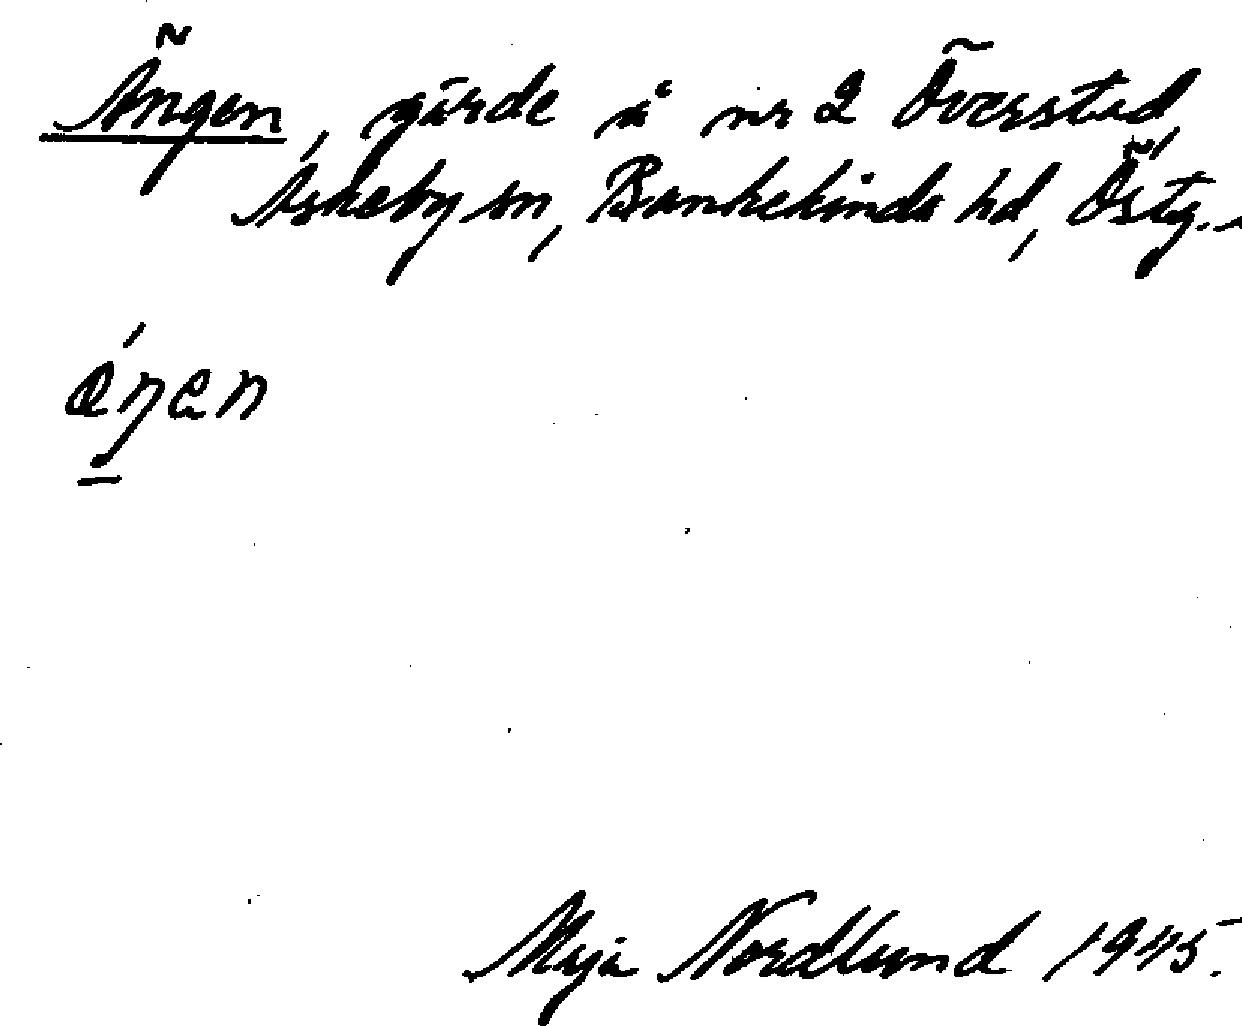 Ängen, gärde å nr 2 Överstad,
Askeby sn, Bankekinds hd, Östg.
éŋen
Maja Nordlund 1945.